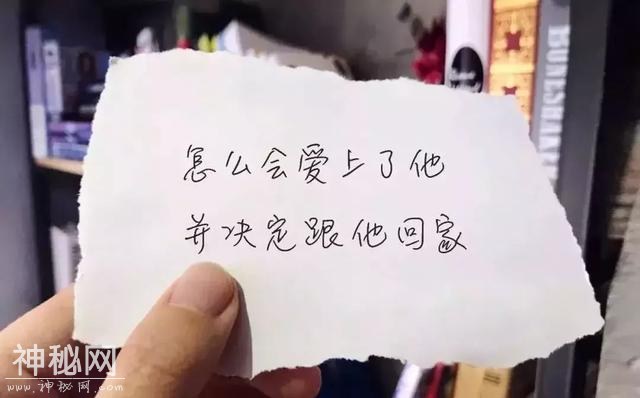 怎么会爱上了他
并决定跟他回家
神秘网
www.神秘网.com